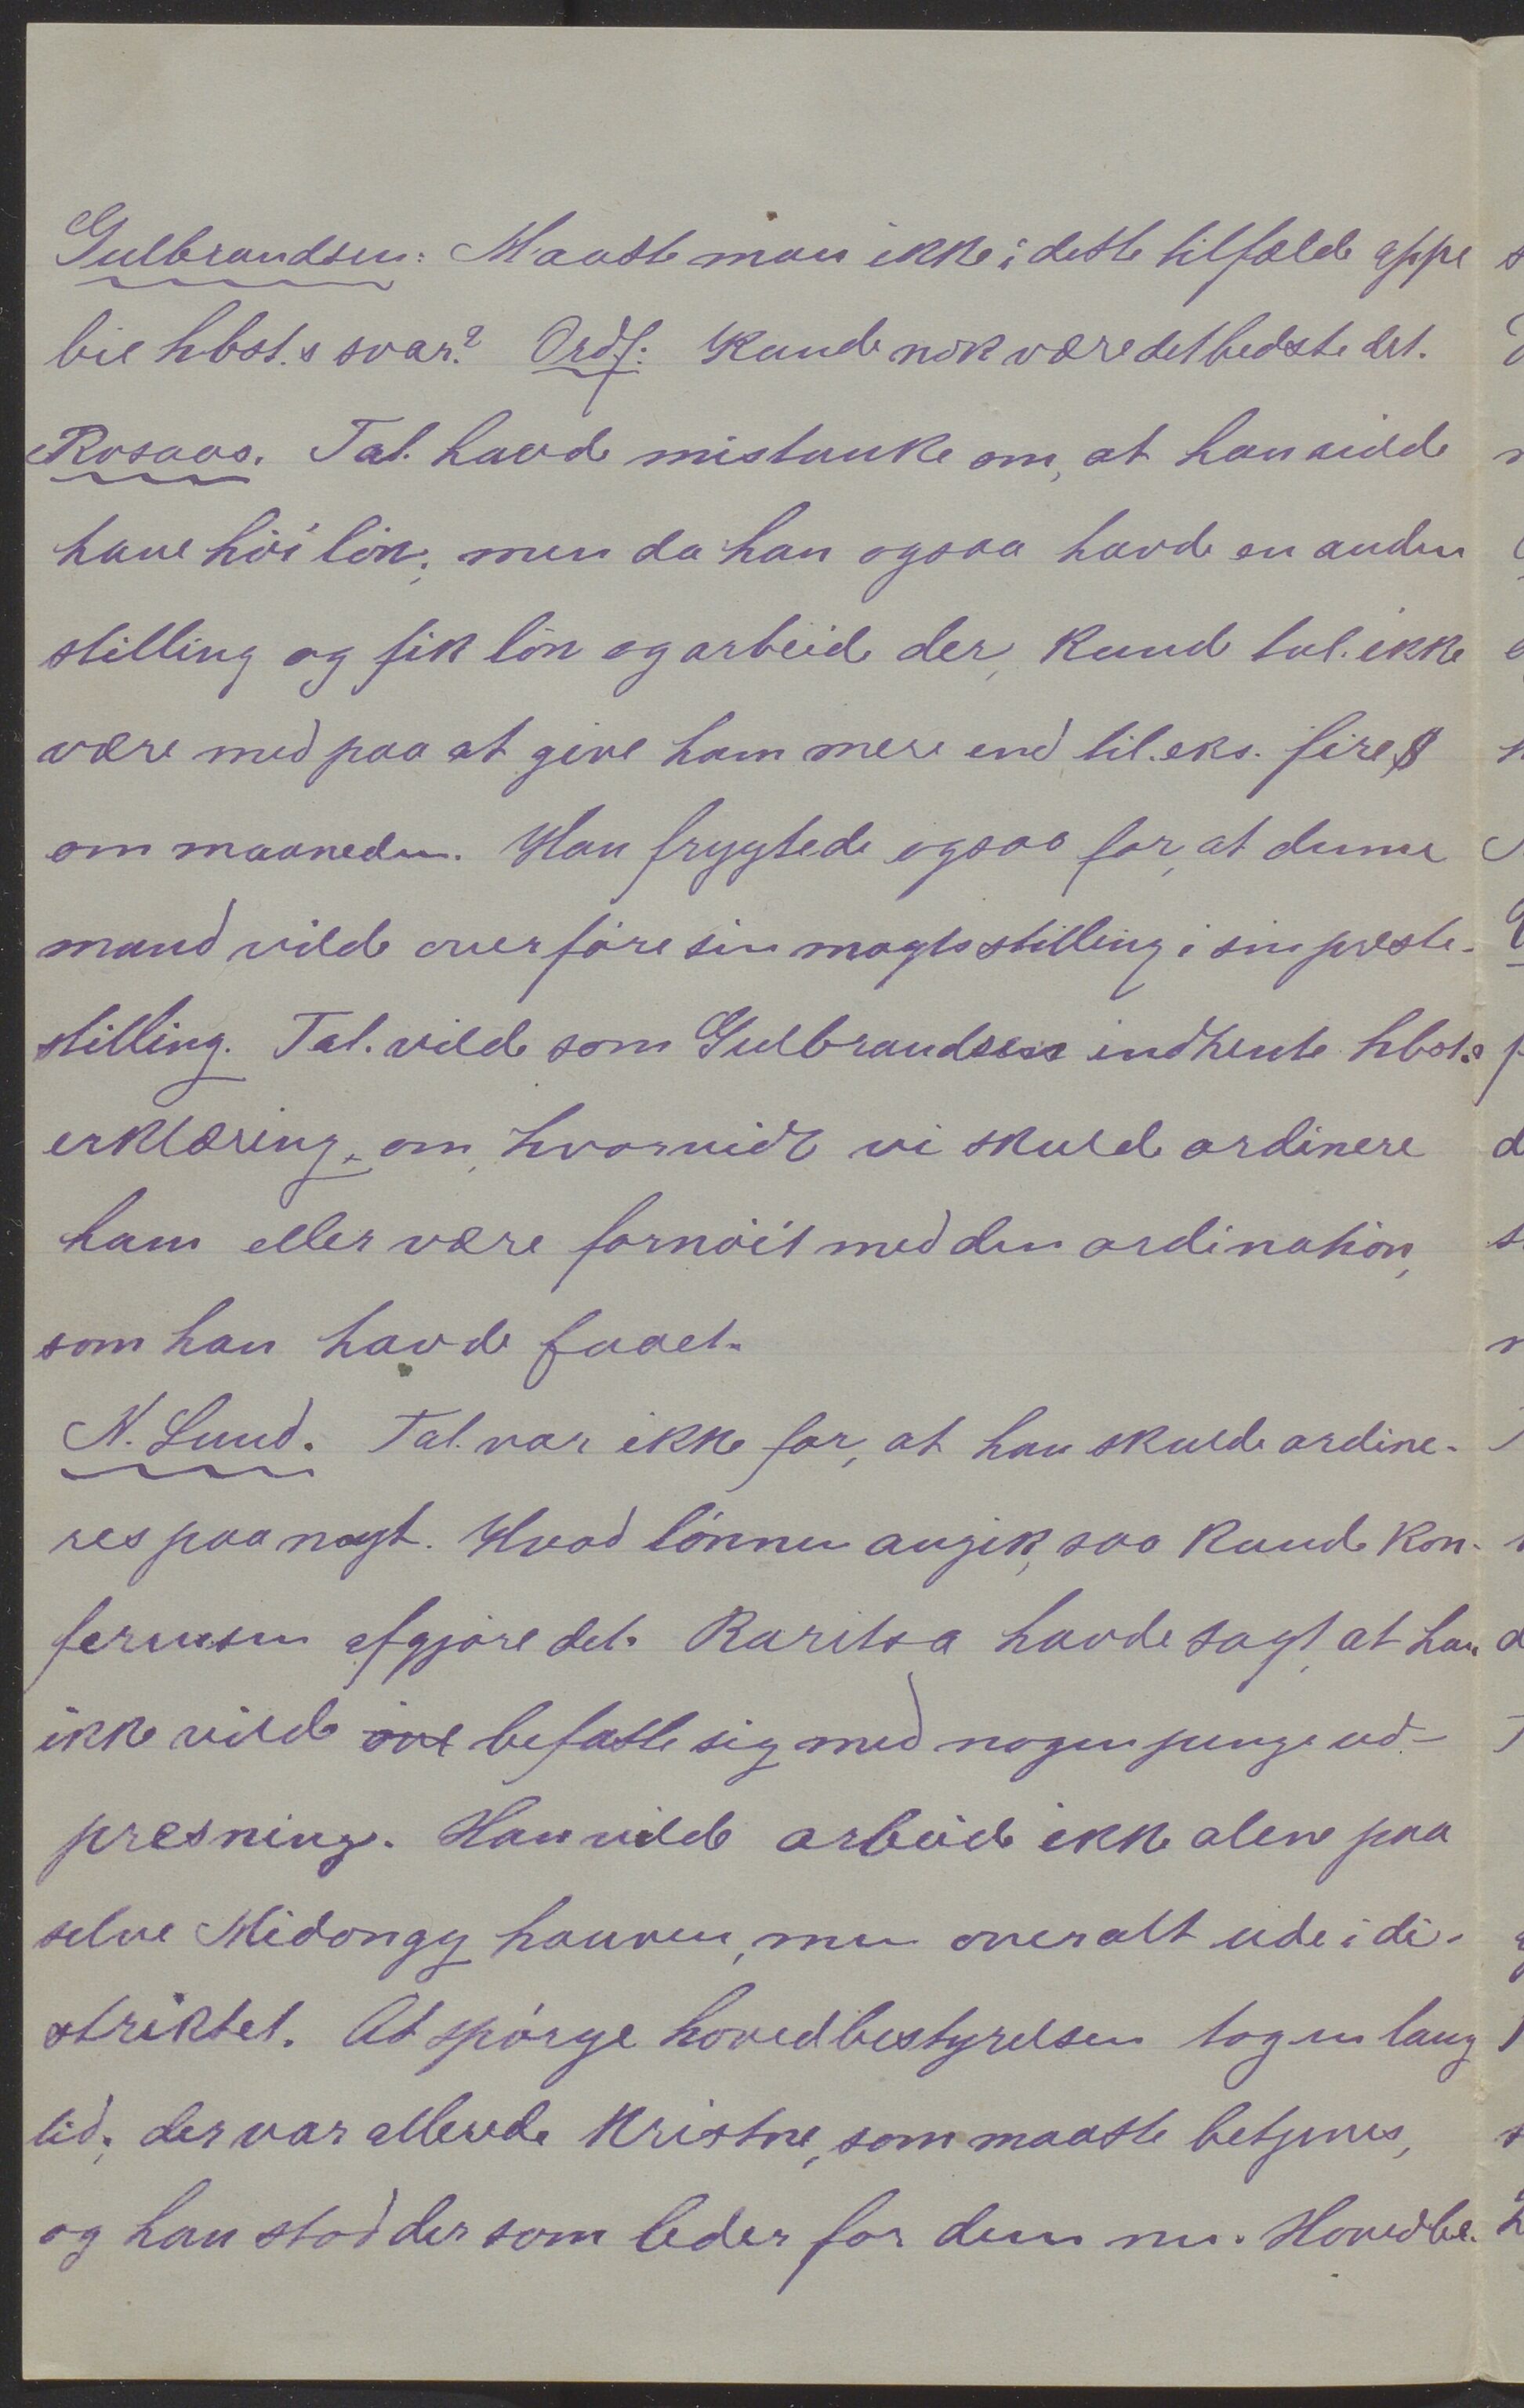 Gulbrandsen: Maatte man ikke i dette tilfælde oppe
bie hbst.s svar? Ordf: Kunde nok være det bedste det.
Rosaas. Tal. havde mistanke om, at han vilde
have höi lön; men da han ogsaa havde en anden
stilling og fik lön og arbeide der, kunde tal. ikke
være med paa at give ham mere end til. eks. fire $
om maaneden. Han frygtede ogsaa for, at denne
mand vilde overföre sin magtsstilling i sin preste-
stilling. Tal. vilde som Gulbrandsen indhente hbst.s
erklæring, om, hvorvidt vi skulde ordinere
ham eller være fornöiet med den ordination,
som han havde faaet.
N. Lund. Tal. var ikke for, at han skulde ordine-
res paa nyt. Hvad lönnen angik, saa kunde kon-
ferensen afgjøre det. Raritsa havde sagt, at han
ikke vilde befatte sig med nogen penge ud-
presning. Han vilde arbeide ikke alene paa
selve Midongy hauven, men overalt ude i di-
striktet. At spørge hovedbestyrelsen tog en lang
tid; der var allerede Kristne, som maatte betjenes,
og han stod der som leder for dem nu. Hovedbe-